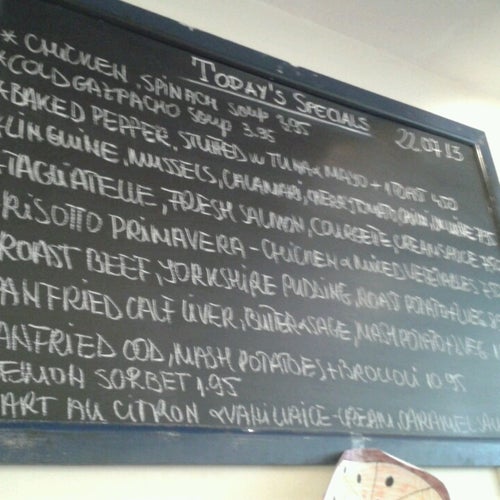 TODAY'S SPECIALS
22.07.13
* CHICKEN, SPINACH SOUP 3.95
* COLD GAZPACHO SOUP 3.95
* BAKED PEPPER, STUFFED W TUNA & MAYO + TOAST 4.50
* LINGUINE, MUSSELS, CALAMARI, CHERRY TOMATO,
TAGLIATELLE, FRESH SALMON, COURGETTE, CREAM SAUCE
RISOTTO PRIMAVERA - CHICKEN & MIXED VEGETABLES
ROAST BEEF, YORKSHIRE PUDDING, ROAST POTATO + VEG
ANFRIED CALF LIVER, BUTTER & SAGE, MASH POTATO + VEG
ANFRIED COD, MASH POTATOES + BROCCOLI 10.95
EMON SORBET 1,95
ART AU CITRON CREAM, CARAMEL